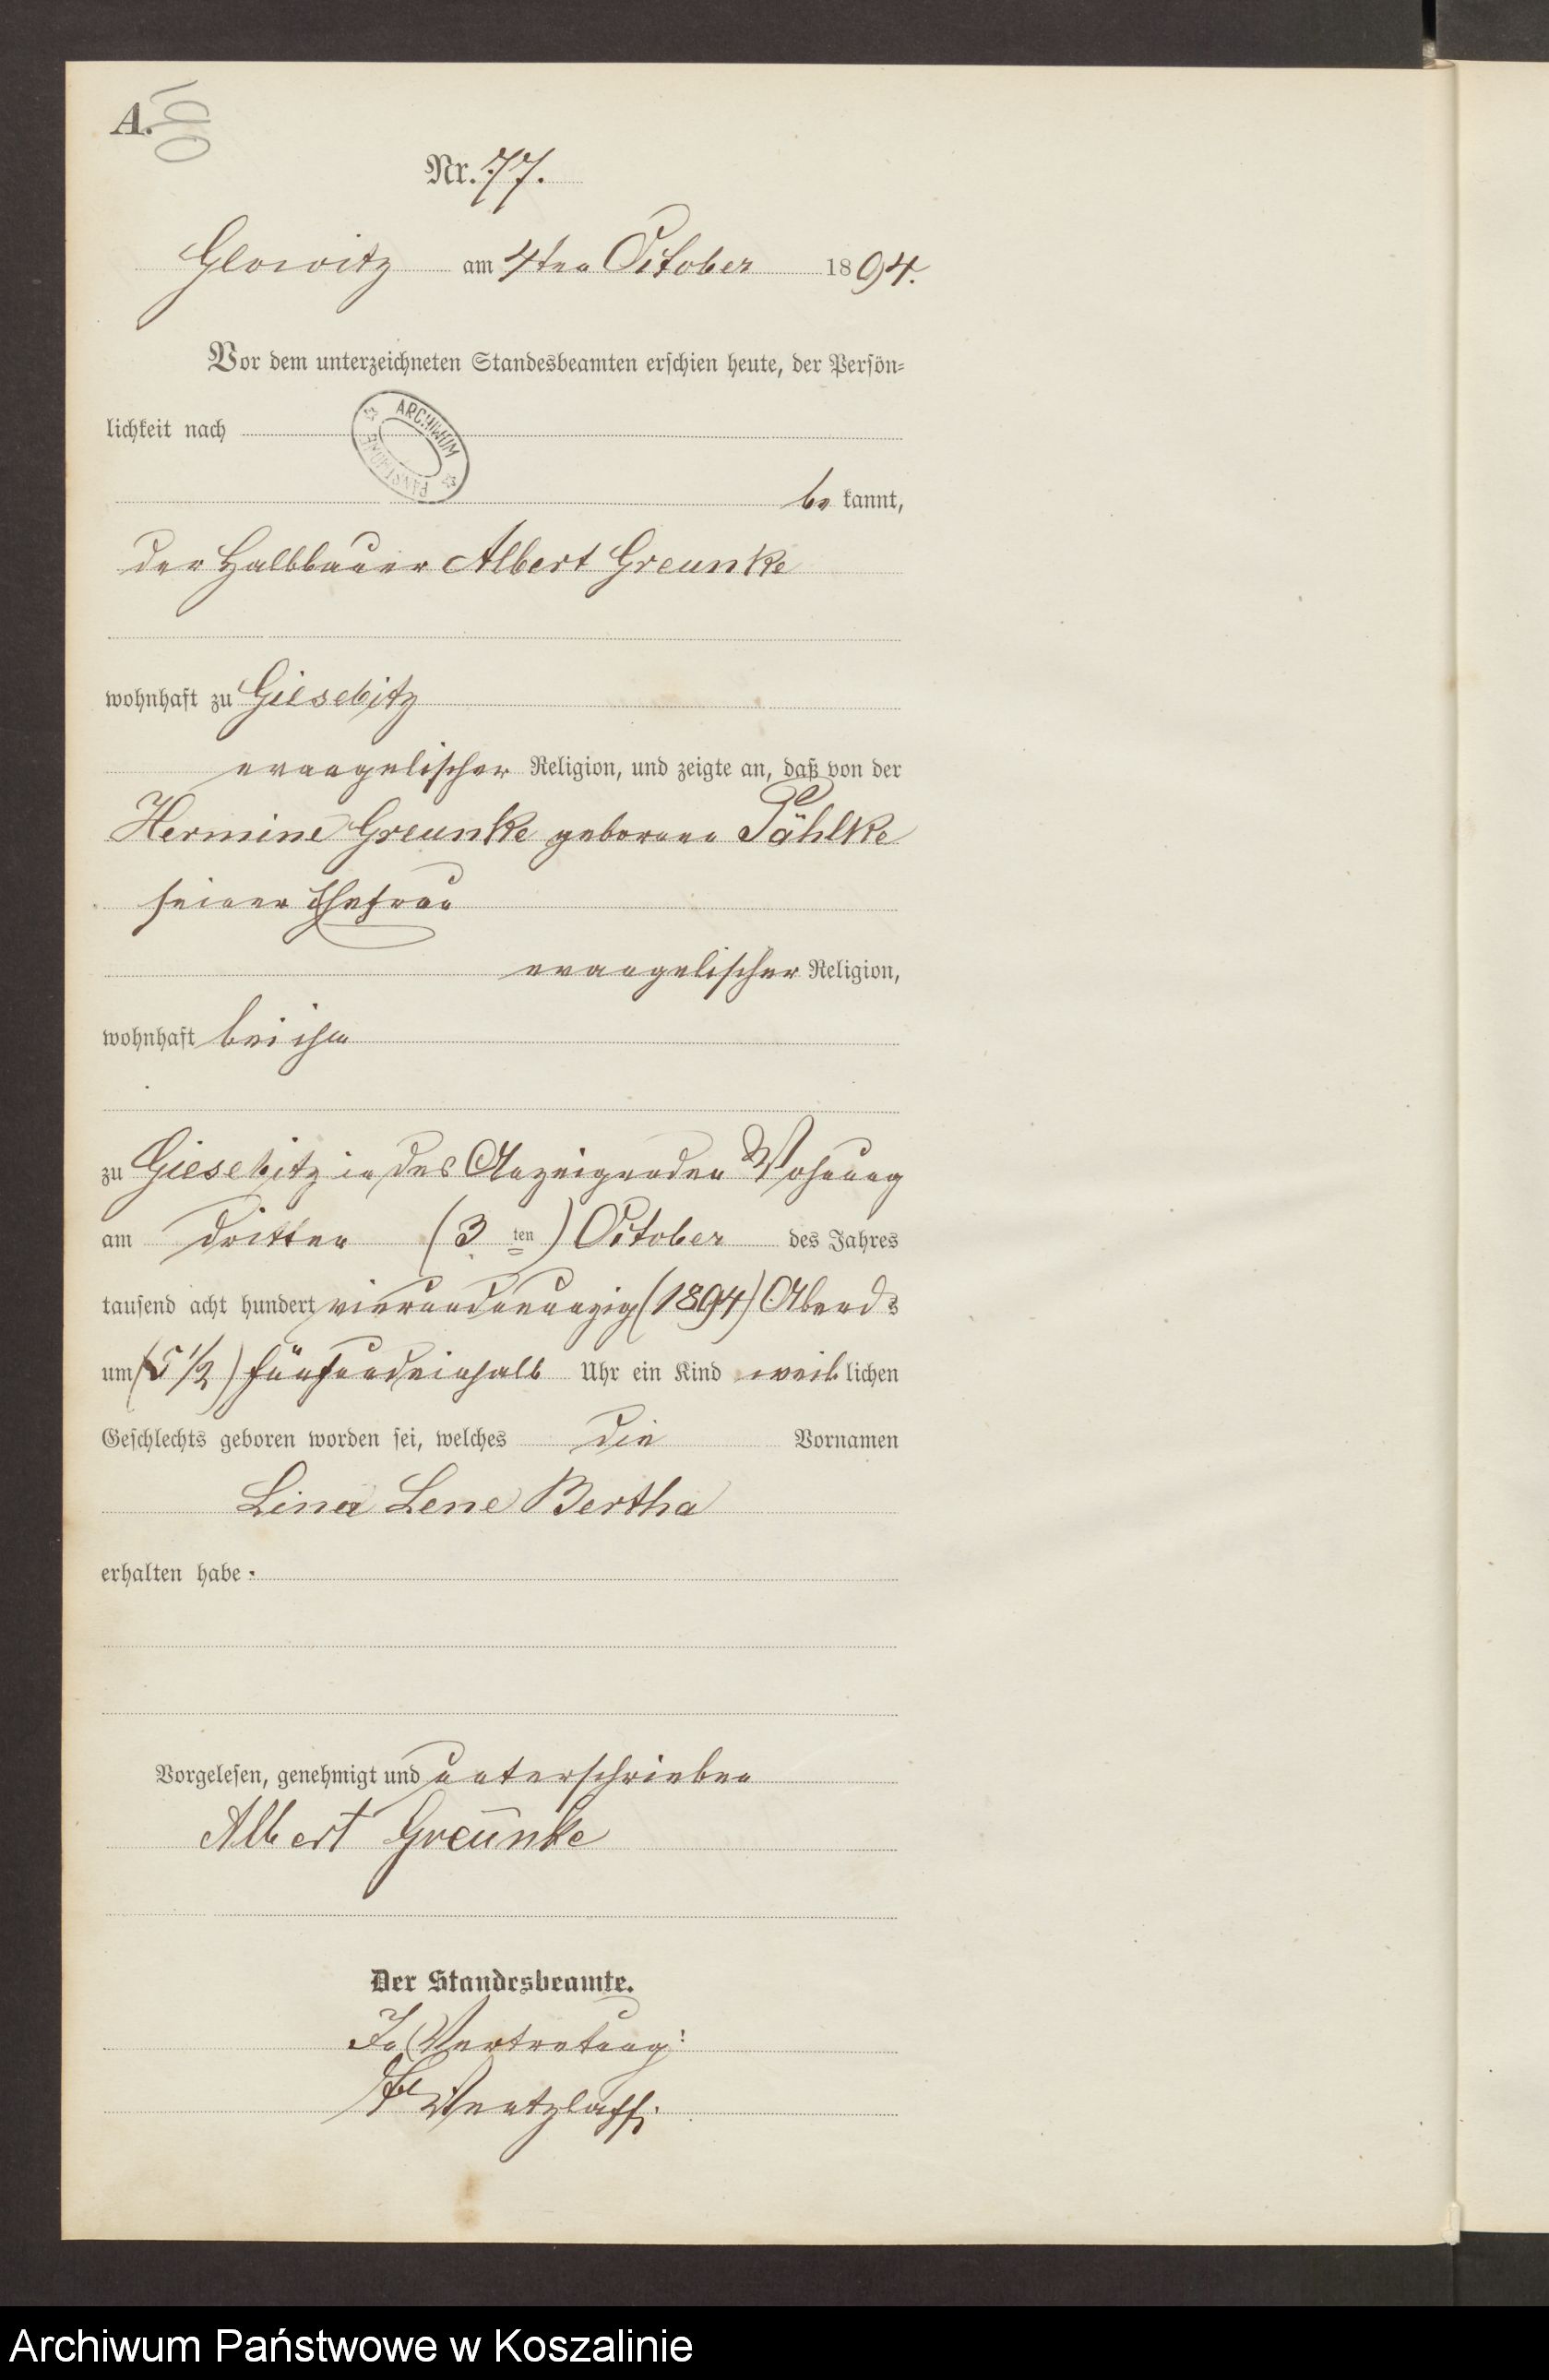 A.
Nr. 77.
Glowitz am 4ten October 1894.
Vor dem unterzeichneten Standesbeamten erschien heute, der Persön-
lichkeit nach
ARCHIWUM
be kannt,
der Halbbauer Albert Greunke
wohnhaft zu Giesebitz
evangelischer Religion, und zeigte an, daß von der
Hermine Greunke geborene Pählke
seiner Ehefrau
evangelischer Religion,
wohnhaft bei ihm
zu Giesebitz in des Anzeigenden Wohnung
am dritten (3 ten) October des Jahres
tausend acht hundert vierundneunzig (1894) Abends
um (5 1/2) fünfundeinhalb Uhr ein Kind weiblichen
Geschlechts geboren worden sei, welches die Vornamen
Lina Lene Bertha
erhalten habe.
Vorgelesen, genehmigt und unterschrieben
Albert Greunke
Der Standesbeamte.
In Vertretung:
Wentzlaff.
Archiwum Państwowe w Koszalinie